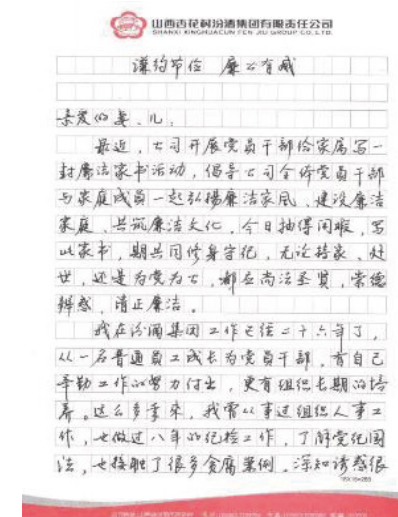 山西杏花村汾酒集团有限责任公司
SHANXI XINGHUACUN FEN JIU GROUP CO., LTD.
谦约节俭 廉公有威
亲爱的妻、儿:
最近,公司开展党员干部给家属写一
封廉洁家书活动,倡导公司全体党员干部
与家庭成员一起弘扬廉洁家风,建设廉洁
家庭、共筑廉洁文化,今日抽得闲暇,写
此家书,期共同修身守纪,无论持家、处
世,还是为党为公,都应尚法圣贤,崇德
辨惑,清正廉洁。
我在汾酒集团工作已经二十六年了,
从一名普通员工成长为党员干部,有自己
辛勤工作的努力付出,更有组织长期的培
养。这么多年来,我常从事过组织人事工
作,也做过八年的纪检工作,了解党纪国
法,也接触了很多贪腐案例。深知诱惑很